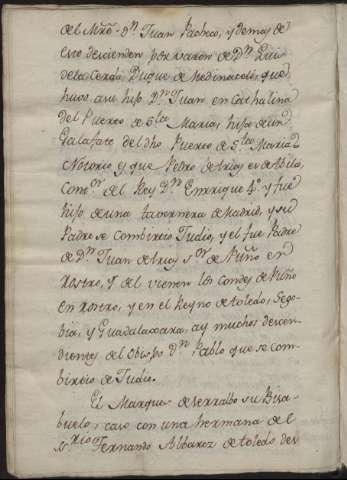 del Mrô. Dⁿ. Juan Pacheco, y demas de
esto descienden por varon de Dⁿ. Luis
dela Cerda Duque de Medinaceli, que
huvo a su hijo Dⁿ. Juan en Cathalina
del Puerto de Sᵗᵃ Maria, hija de un
Calafate del dho Puerto de Sᵗᵃ Maria
Notorio y que Pedro
Contᵒʳ. del Rey Dⁿ. Enrrique 4º. y fue
hijo de una tavernera de Madrid, y su
Padre se combirtio Judio, y el fue Padre
de Dⁿ. Juan de Arias sᵒʳ. de Puño en
Rostro, y del vienen los Condes de Puño
en rostro, y en el Reyno de toledo, Sego
bia, y Guadalaxara, ay muchos descen
dientes del Obispo Dⁿ. Pablo que se com
birtio de Judio.
El Marques de serralbo su Bisa
buelo, caso con una hermana de el
Fernando Albarez de toledo des